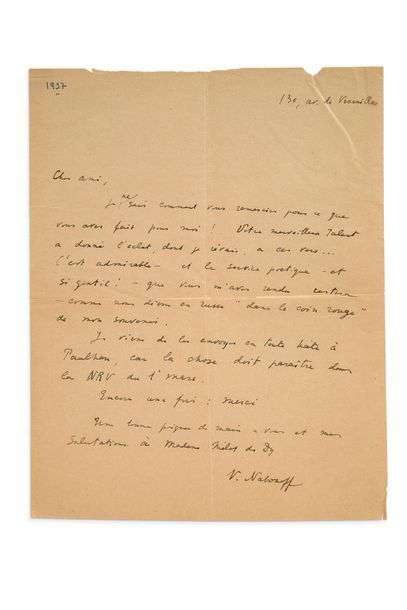 1937
130, av. de Versailles
Cher ami,
je ne sais comment vous remercier pour ce que
vous avez fait pour moi ! Votre merveilleux talent
a donné l'éclat dont je rêvais, à ces vers...
C'est admirable – et le service poétique – et
si gentil ! – que vous m'avez rendu restera
– comme nous disons en russe "dans le coin rouge"
de mon souvenir.
Je viens de les envoyer en toute hâte à
Paulhan, car la chose doit paraître dans
la NRV du 1er mars.
Encore une fois : merci
Une bonne poignée de main à vous et mes
salutations à Madame Mélot du Dy
V. Nabokoff